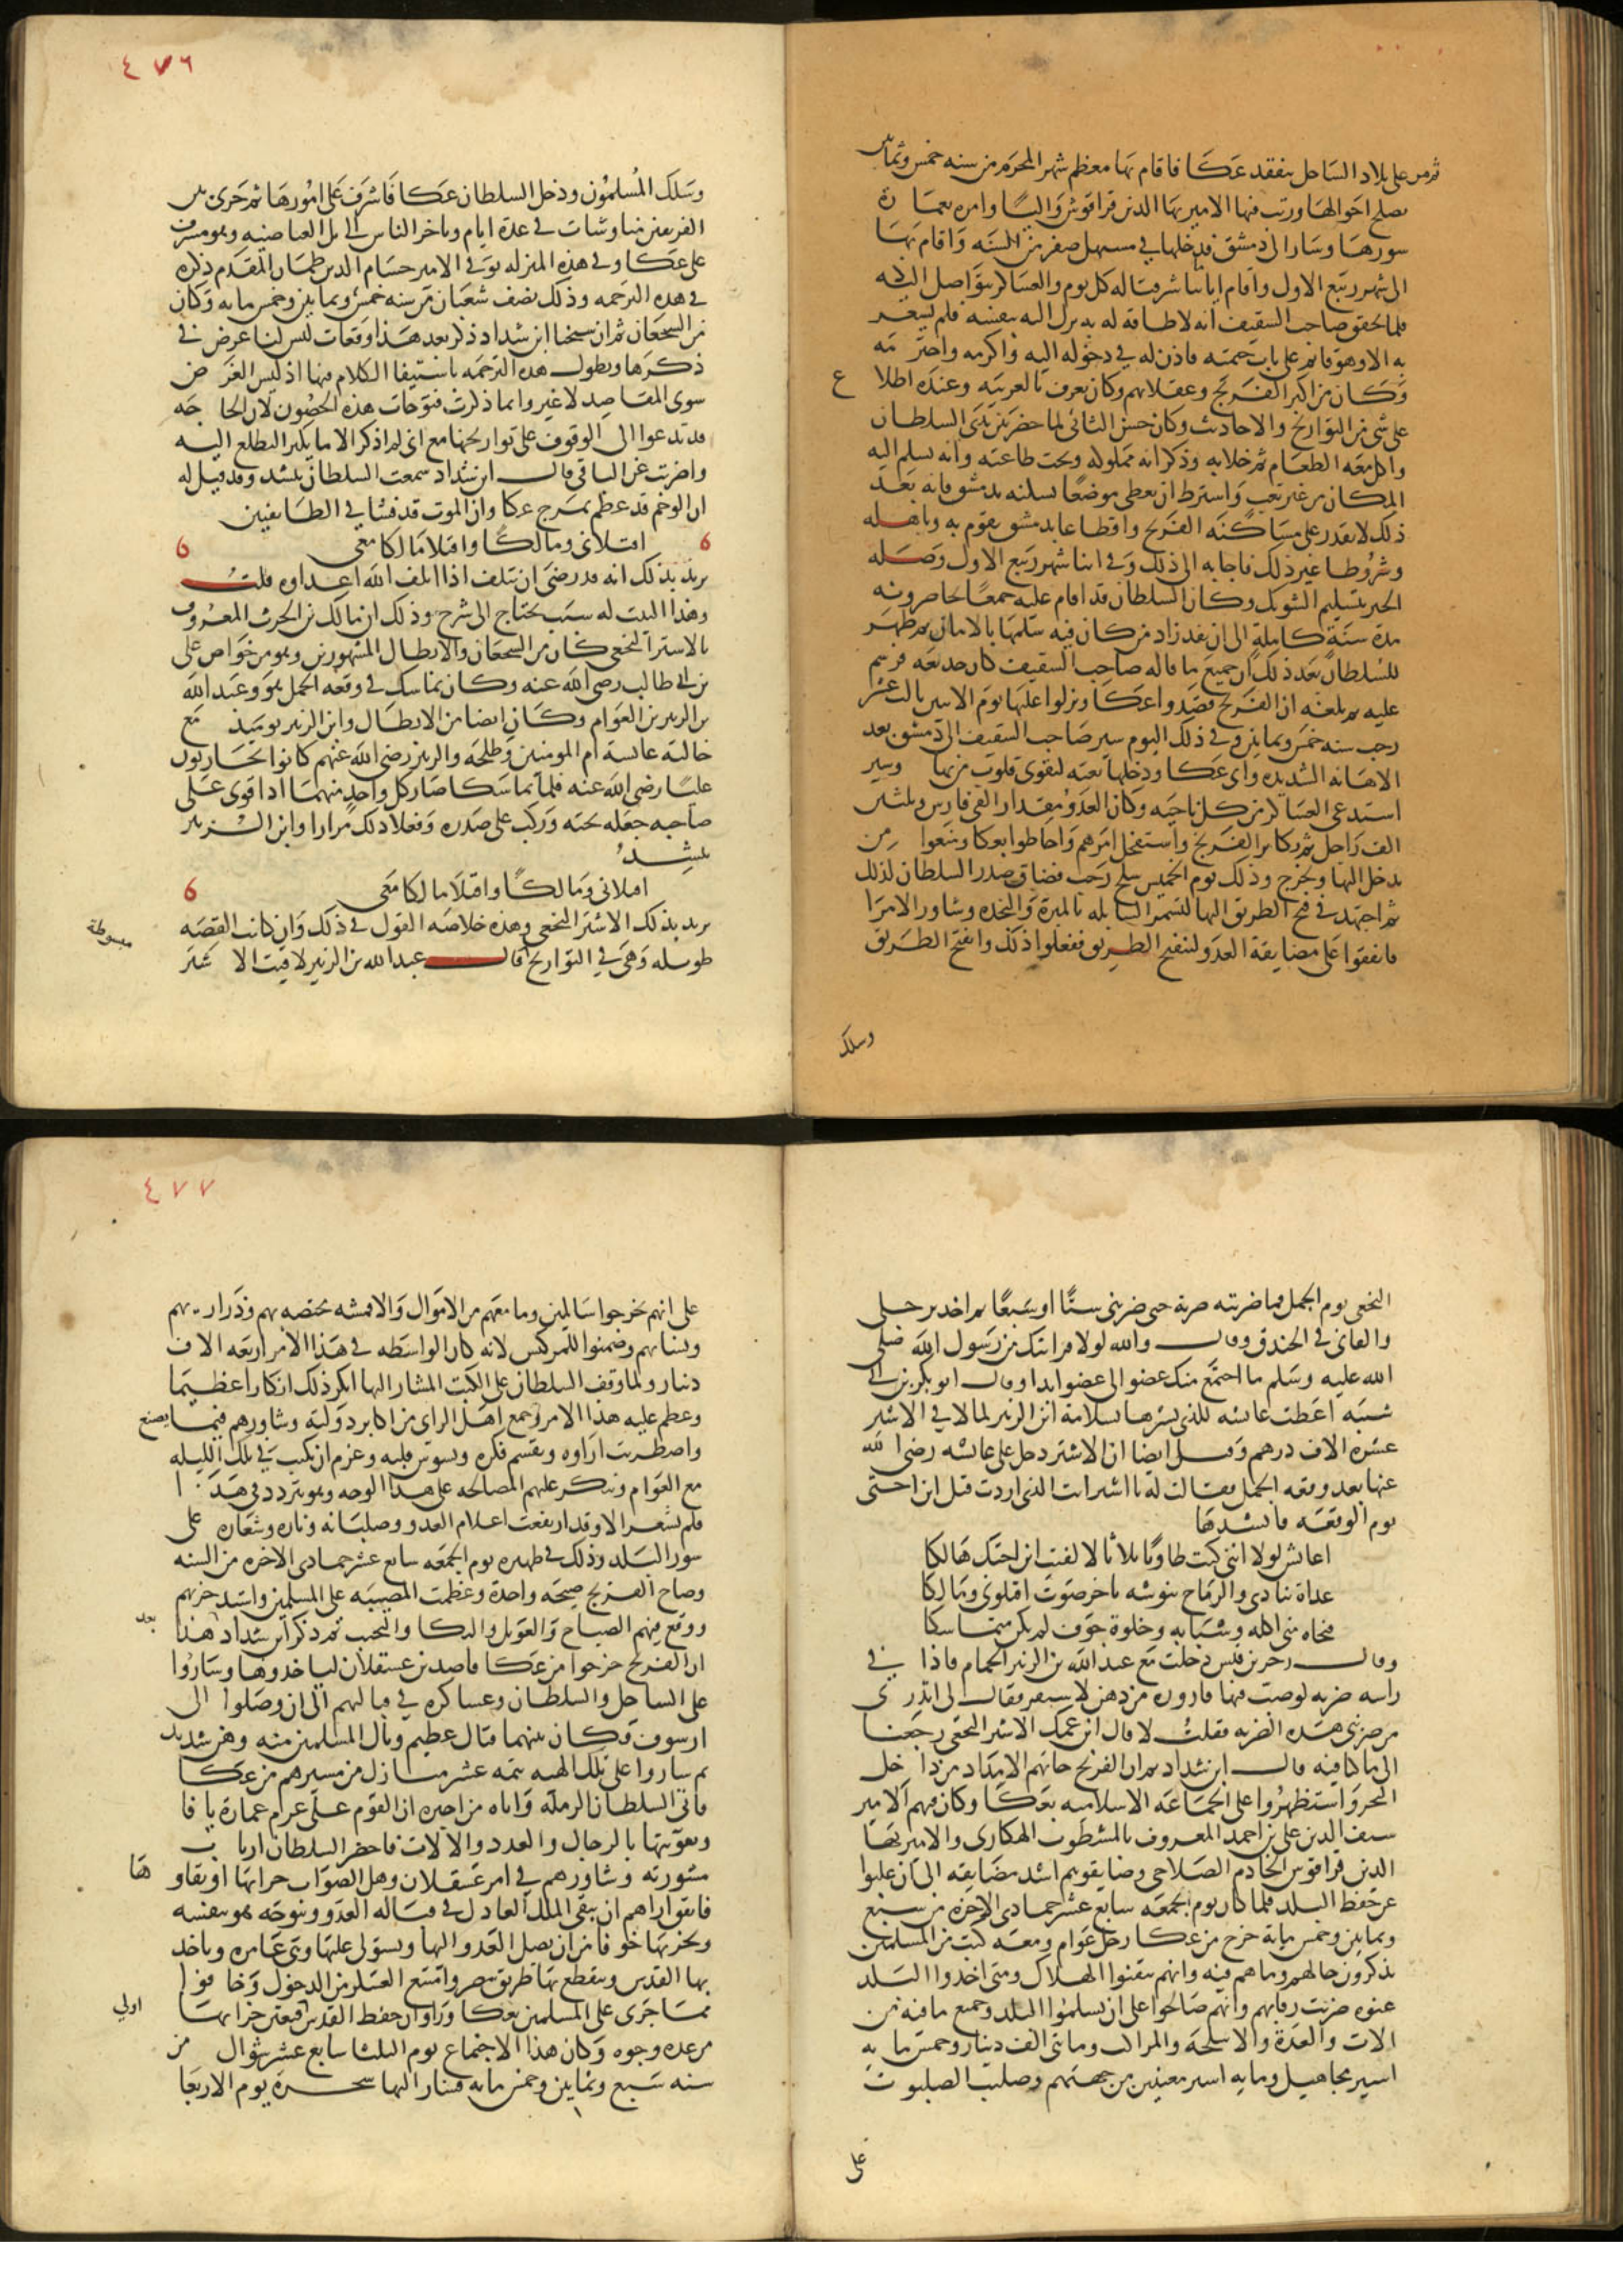 ثم مر على بلاد الساحل يتفقد عكا فاقام بها معظم شهر المحرم من سنه خمس وثمانين
يصلح احوالها ورتب فيها الامير بها الدين قراقوش واليا وامره بعمارة
سورها وسار الى دمشق فدخلها في مستهل صفر من السنه واقام بها
الى شهر ربيع الاول واقام اياما شرفتاله كل يوم والعساكر يتواصل اليه
فلما تحقق صاحب الشقيف انه لا طاقه له به نزل اليه بنفسه فلم يشعر
به الا وهو قائم على باب خيمته فاذن له في دخوله اليه واكرمه واحترمه
وكان من اكبر الفرنج وعقلائهم وكان يعرف بالعربيه وعنده اطلاع
على شى من التواريخ والاحاديث وكان حسن التاني لما حضر بين يدى السلطان
واكل معه الطعام ثم خلا به وذكر انه مملوكه وتحت طاعته وانه يسلم اليه
المكان من غير تعب واشترط ان يعطى موضعا يسكنه بدمشق فانه بعد
ذلك لا يقدر على مساكنه الفرنج واقطاعا بدمشق يقوم به وباهله
وشروطا غير ذلك فاجابه الى ذلك وفي اثنا شهر ربيع الاول وصله
الخبر بتسليم الشوبك وكان السلطان قد اقام عليه جمعا يحاصرونه
مدة سنة كاملة الى ان نفد زاد من كان فيه سلمها بالامان ثم ظهر
للسلطان بعد ذلك ان جميع ما قاله صاحب الشقيف كان خديعه فرسم
عليه ثم بلغه ان الفرنج قصدوا عكا ونزلوا عليها يوم الاثنين ثالث عشر
رجب سنه خمس وثمانين وفي ذلك اليوم سير صاحب الشقيف الى دمشق بعد
الاهانه الشديده واتى عكا ودخلها بغته لتقوى قلوب من بها وسير
استدعى العساكر من كل ناحيه وكان العدو مقدار الفى فارس وثلثين
الف راجل ثم تكاثر الفرنج واستفحل امرهم واحاطوا بعكا ومنعوا من
يدخل اليها ويخرج وذلك يوم الخميس سلخ رجب فضاق صدر السلطان لذلك
ثم اجتهد في فتح الطريق اليها لتستمر السابله بالميرة والنجده وشاور الامرا
فاتفقوا على مضايقة العدو لينفتح الطريق ففعلوا ذلك وانفتح الطريق
وسلك
٤٧٦
وسلك المسلمون ودخل السلطان عكا فاشرف على امورها ثم جرى بين
الفريقين مناوشات في عدة ايام وتاخر الناس الى تل العياضيه وهو مشرف
على عكا وفي هذه المنزله توفي الامير حسام الدين طمان المقدم ذكره
في هذه الترجمه وذلك نصف شعبان من سنه خمس وثمانين وخمس مايه وكان
من الشجعان ثم ان شيخنا ابن شداد ذكر بعد هذا وقعات ليس لنا غرض في
ذكرها وتطول هذه الترجمه باستيفا الكلام فيها اذ ليس الغرض
سوى المقاصد لا غير وانما ذكرت فتوحات هذه الحصون لان الحاجه
قد تدعوا الى الوقوف على تواريخها مع انى لم اذكر الا ما يكثر التطلع اليه
واضربت عن الباقى قال ابن شداد سمعت السلطان ينشد وقد قيل له
ان الوخم قد عظم بمرج عكا وان الموت قد فشا في الطايفتين
اقتلانى ومالكا واقتلا مالكا معى
يريد بذلك انه قد رضى ان يتلف اذا اتلف الله اعداوه قلت
وهذا البيت له سبب يحتاج الى شرح وذلك ان مالك بن الحرث المعروف
بالاشتر النخعى كان من الشجعان والابطال المشهورين وهو من خواص على
بن ابى طالب رضى الله عنه وكان تماسك في وقعه الجمل هو وعبد الله
بن الزبير بن العوام وكان ايضا من الابطال وابن الزبير يوميذ مع
خالته عايشه ام المومنين وطلحه والزبير رضى الله عنهم كانوا يحاربون
عليا رضى الله عنه فلما تماسكا صار كل واحد منهما اذا قوى على
صاحبه جعله تحته وركب على صدره وفعلا ذلك مرارا وابن الزبير
ينشد
اقتلانى ومالكا واقتلا مالكا معى
يريد بذلك الاشتر النخعى وهذه خلاصه القول في ذلك وان كانت القصه مبسوطة
طويله وهى في التواريخ قال عبد الله بن الزبير لاقيت الاشتر
النخعى يوم الجمل فما ضربته ضربة حتى ضربنى ستا او سبعا ثم اخذ برجلى
والقانى في الخندق وقال والله لولا قرابتك من رسول الله صلى
الله عليه وسلم ما اجتمع منك عضو الى عضو ابدا وقال ابو بكر بن ابى
شيبه اعطت عائشه للذى بشرها بسلامة ابن الزبير لما لاقى الاشتر
عشره الاف درهم وقيل ايضا ان الاشتر دخل على عائشه رضى الله
عنها بعد وقعه الجمل فقالت له يا اشتر انت الذى اردت قتل ابن اختى
يوم الوقعه فانشدها
اعايش لولا اننى كنت طاويا ثلاثا لالفيت ابن اختك هالكا
غداة ينادى والرماح تنوشه باخر صوت اقتلونى ومالكا
فنجاه منى اكله وشبابه وخلوة جوف لم يكن متماسكا
وقال زحر بن قيس دخلت مع عبد الله بن الزبير الحمام فاذا في
راسه ضربه لو صب فيها قاروره من دهن لاستقر فقال لى اتدرى
من ضربنى هذه الضربه فقلت لا قال ابن عمك الاشتر النخعى رجعنا
الى ما كنا فيه قال ابن شداد ثم ان الفرنج جاهم الامداد من داخل
البحر واستظهروا على الجماعه الاسلاميه بعكا وكان فيهم الامير
سيف الدين على بن احمد المعروف بالمشطوب الهكارى والامير بها
الدين قراقوش الخادم الصلاحى وضايقوهم اشد مضايقه الى ان غلبوا
عن حفظ البلد فلما كان يوم الجمعه سابع عشر جمادى الاخره من سنه سبع
وثمانين وخمس ماية خرج من عكا رجل عوام ومعه كتب من المسلمين
يذكرون حالهم وما هم فيه وانهم تيقنوا الهلاك ومتى اخذوا البلد
عنوه ضربت رقابهم وانهم صالحوا على ان يسلموا البلد وجميع ما فيه من
الالات والعدة والاسلحه والمراكب ومائتى الف دينار وخمس مايه
اسير مجاهيل ومايه اسير معينين من جهتهم وصليب الصلبوت
على
٤٧٧
على انهم يخرجوا سالمين وما معهم من الاموال والاقمشه مختصه بهم وذراريهم
ونسائهم وضمنوا للمركيس لانه كان الواسطه في هذا الامر اربعه الاف
دينار ولما وقف السلطان على الكتب المشار اليها انكر ذلك انكارا عظيما
وعظم عليه هذا الامر وجمع اهل الراى من اكابر دولته وشاورهم فيما يصنع
واضطربت اراوه وتقسم فكره وتشوش قلبه وعزم ان يكتب في تلك الليله
مع العوام وينكر عليهم المصالحه على هذا الوجه وهو يتردد في هذا
فلم يشعر الا وقد ارتفعت اعلام العدو وصلبانه وناره وشعاره على
سور البلد وذلك في ظهيره يوم الجمعه سابع عشر جمادى الاخره من السنه
وصاح الفرنج صيحه واحدة وعظمت المصيبه على المسلمين واشتد حزنهم
ووقع فيهم الصياح والعويل والبكا والنحيب ثم ذكر ابن شداد بعد هذا
ان الفرنج خرجوا من عكا قاصدين عسقلان لياخذوها وساروا
على الساحل والسلطان وعساكره في قبالتهم الى ان وصلوا الى
ارسوف فكان بينهما قتال عظيم ونال المسلمين منه وهن شديد
ثم ساروا على تلك الهيه تتمه عشر منازل من مسيرهم من عكا
فاتى السلطان الرملة واتاه من اخبره ان القوم على عزم عمارة يافا
وتقويتها بالرجال والعدد والالات فاحضر السلطان ارباب
مشورته وشاورهم في امر عسقلان وهل الصواب خرابها او بقاوها
فاتفق اراهم ان يبقى الملك العادل في قبالة العدو ويتوجه هو بنفسه
ويخربها خوفا من ان يصل العدو اليها ويستولى عليها وهى عامره وياخذ
بها القدس وينقطع بها طريق مصر وامتنع العسكر من الدخول وخافوا
مما جرى على المسلمين بعكا وراوا ان حفظ القدس فتعين خرابها اولي
من عده وجوه وكان هذا الاجتماع يوم الثلثا سابع عشر شوال من
سنه سبع وثمانين وخمس مايه فسار اليها سحره يوم الاربعا